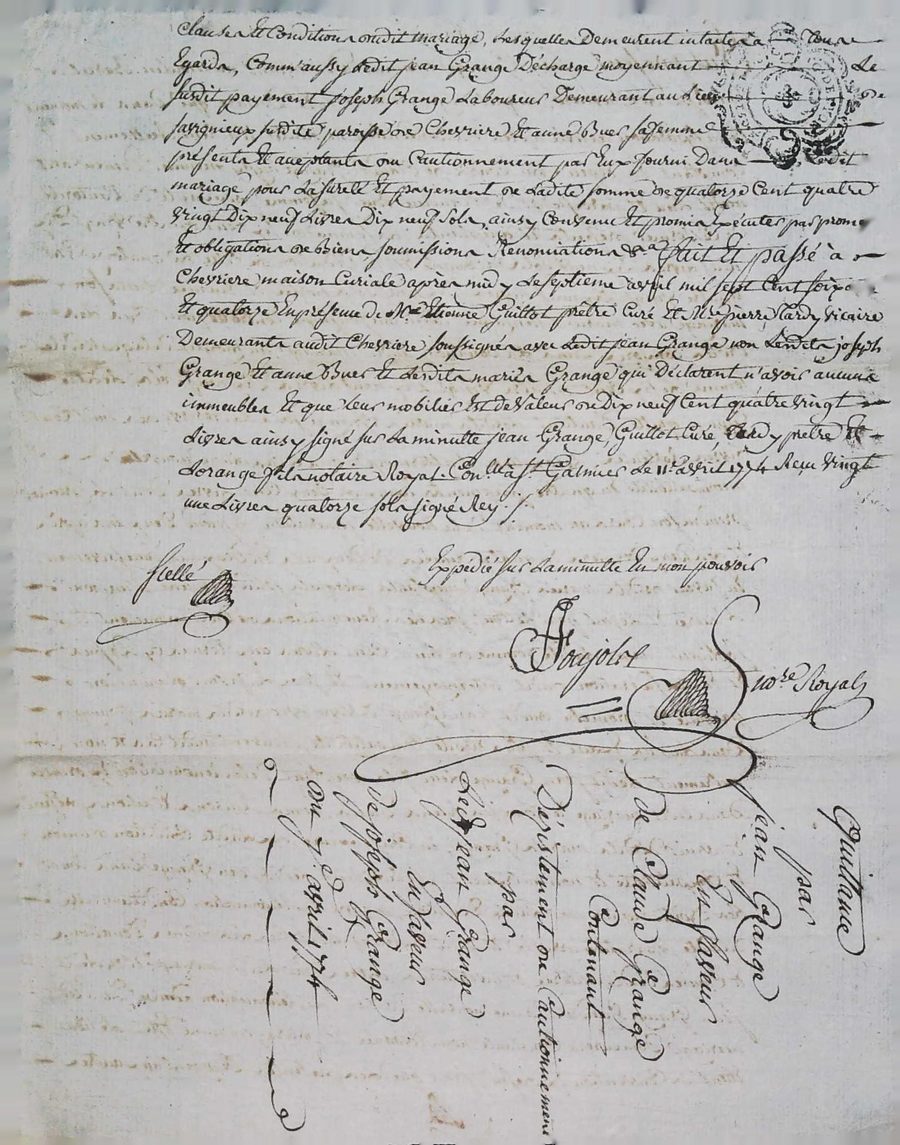 Clauses Et Conditions dudit mariage, Lesquelles Demeurent intaites à Tous
Egards, Comm'aussy Ledit jean Grange Décharge moyennant Le
susdit payement joseph Grange Laboureur Demeurant au Lieu de
savignieux susdite paroisse de Chevriere Et anne Bues sa femme
présents Et aceptants du Cautionnement par Eux fourni Dans Ledit
mariage pour La sureté Et payement de Ladite somme de quatorze Cent quatre
vingt Dix neuf Livres Dix neuf sols, ainsy Convenu Et promis Exécuter par prom
Et obligations de Biens soumissions Renonciations &a fait Et passé à
Chevriere maison Curiale après midy Le septieme avril mil sept Cent soixa
Et quatorze En présence de Mre Etienne Guillot prêtre Curé Et Mre pierre Tardy vicaire
Demeurants audit Chevriere soussignés avec Ledit jean Grange non Lesdits joseph
Grange Et anne Bues Et Lesdits mariés Grange qui Déclarent n'avoir aucuns
immeubles Et que Leur mobilier Est de Valeur de Dix neuf Cent quatre vingt
Livres ainsy signé sur La minutte jean Grange, Guillot Curé, Tardy prêtre Et
Lorange fils notaire Royal. Con.lé à st Galmier Le 11e avril 1774 Reçu vingt
une Livres quatorze sols signé Rey ./.
Expedié sur La minutte En mon pouvoir
Scellé
Poujolx
no.re Royal
Quittance
par
jean Grange
En faveur
de Claude Grange
Contenant
Département du Cautionnement
par
Ledt jean Grange
En faveur
de joseph Grange
du 7 avril 1774